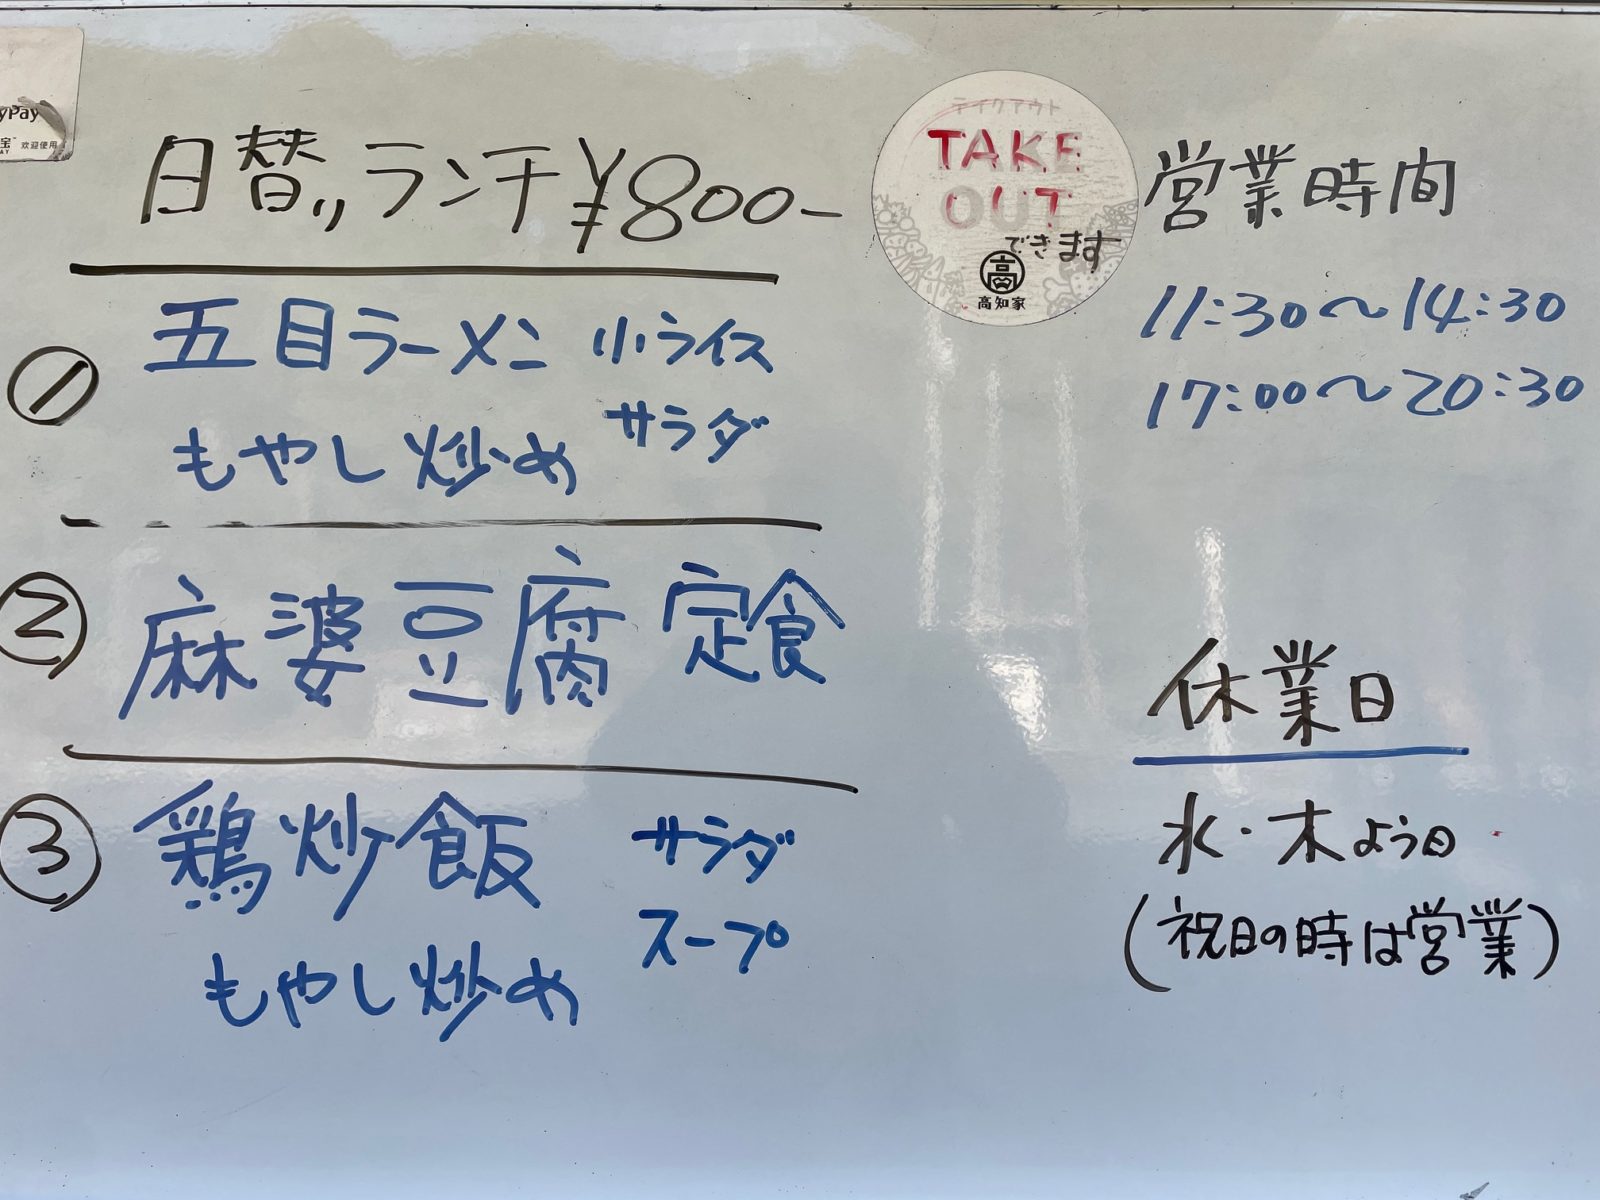 yPay
宝
AY 欢迎使用
日替りランチ¥800-
① 五目ラーメン 小ライス
もやし炒め サラダ
② 麻婆豆腐 定食
③ 鶏炒飯 サラダ
スープ
もやし炒め
テイクアウト
TAKE
OUT
できます
高
高知家
営業時間
11:30〜14:30
17:00〜20:30
休業日
水・木よう日
(祝日の時は営業)